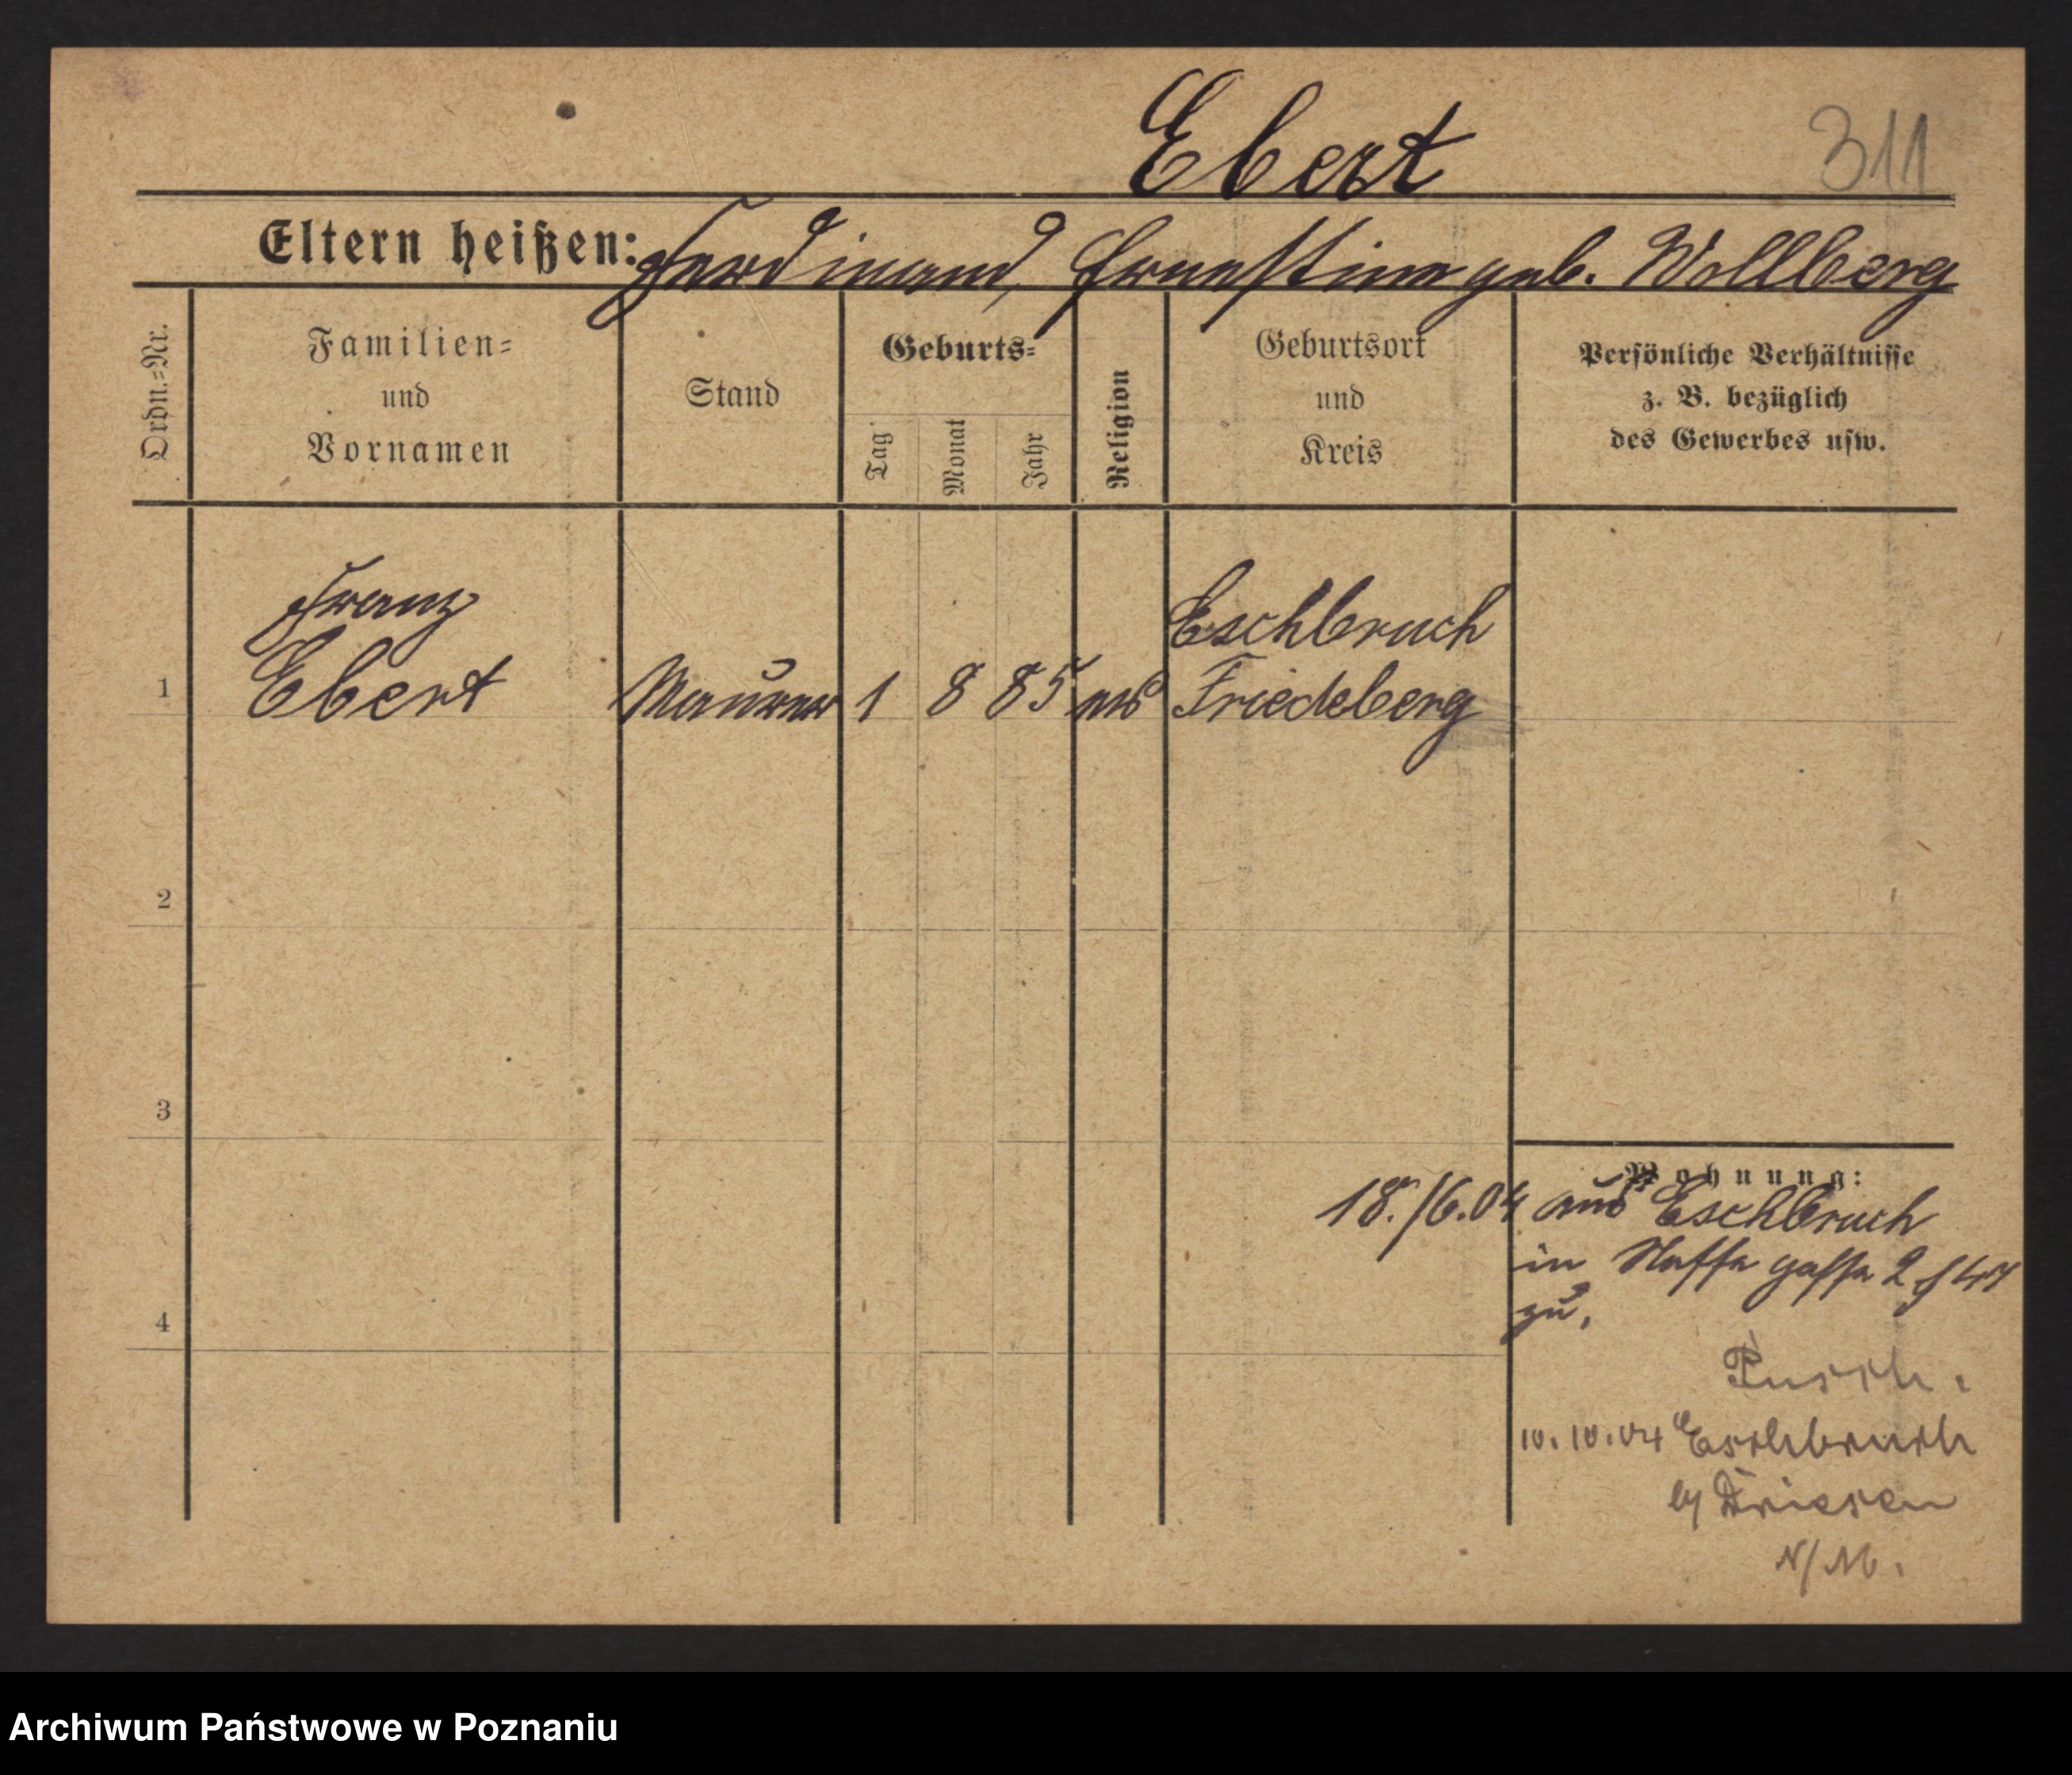 Ebert
311
Eltern heißen: Ferdinand, Ernestine geb. Wollberg
Ordn.-Nr.
Familien-
und
Vornamen
Stand
Geburts-
Tag
Monat
Jahr
Religion
Geburtsort
und
Kreis
Persönliche Verhältnisse
z. B. bezüglich
des Gewerbes usw.
Franz
Ebert
1
Maurer
1 8 85
Eschbruch
Friedeberg
2
3
4
Wohnung:
18./6.04 aus Eschbruch
in gasse 2
zu.
10.10.04 Eschbruch
Driesen
N/M.
Archiwum Państwowe w Poznaniu